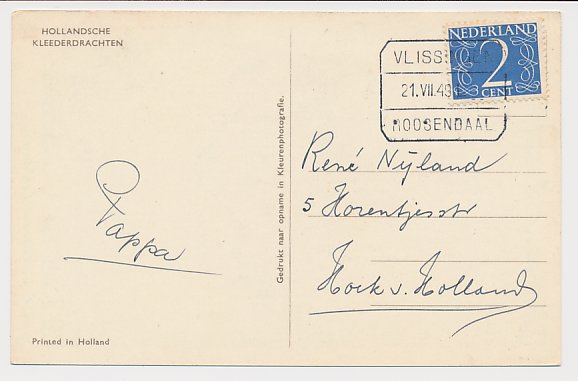 HOLLANDSCHE
KLEEDERDRACHTEN
Pappa
Printed in Holland
Gedrukt naar opname in Kleurenphotografie.
NEDERLAND
2
CENT
VLISSINGEN
21.VII.49
ROOSENDAAL
René Nijland
5 Horentjesstr
Hoek v. Holland